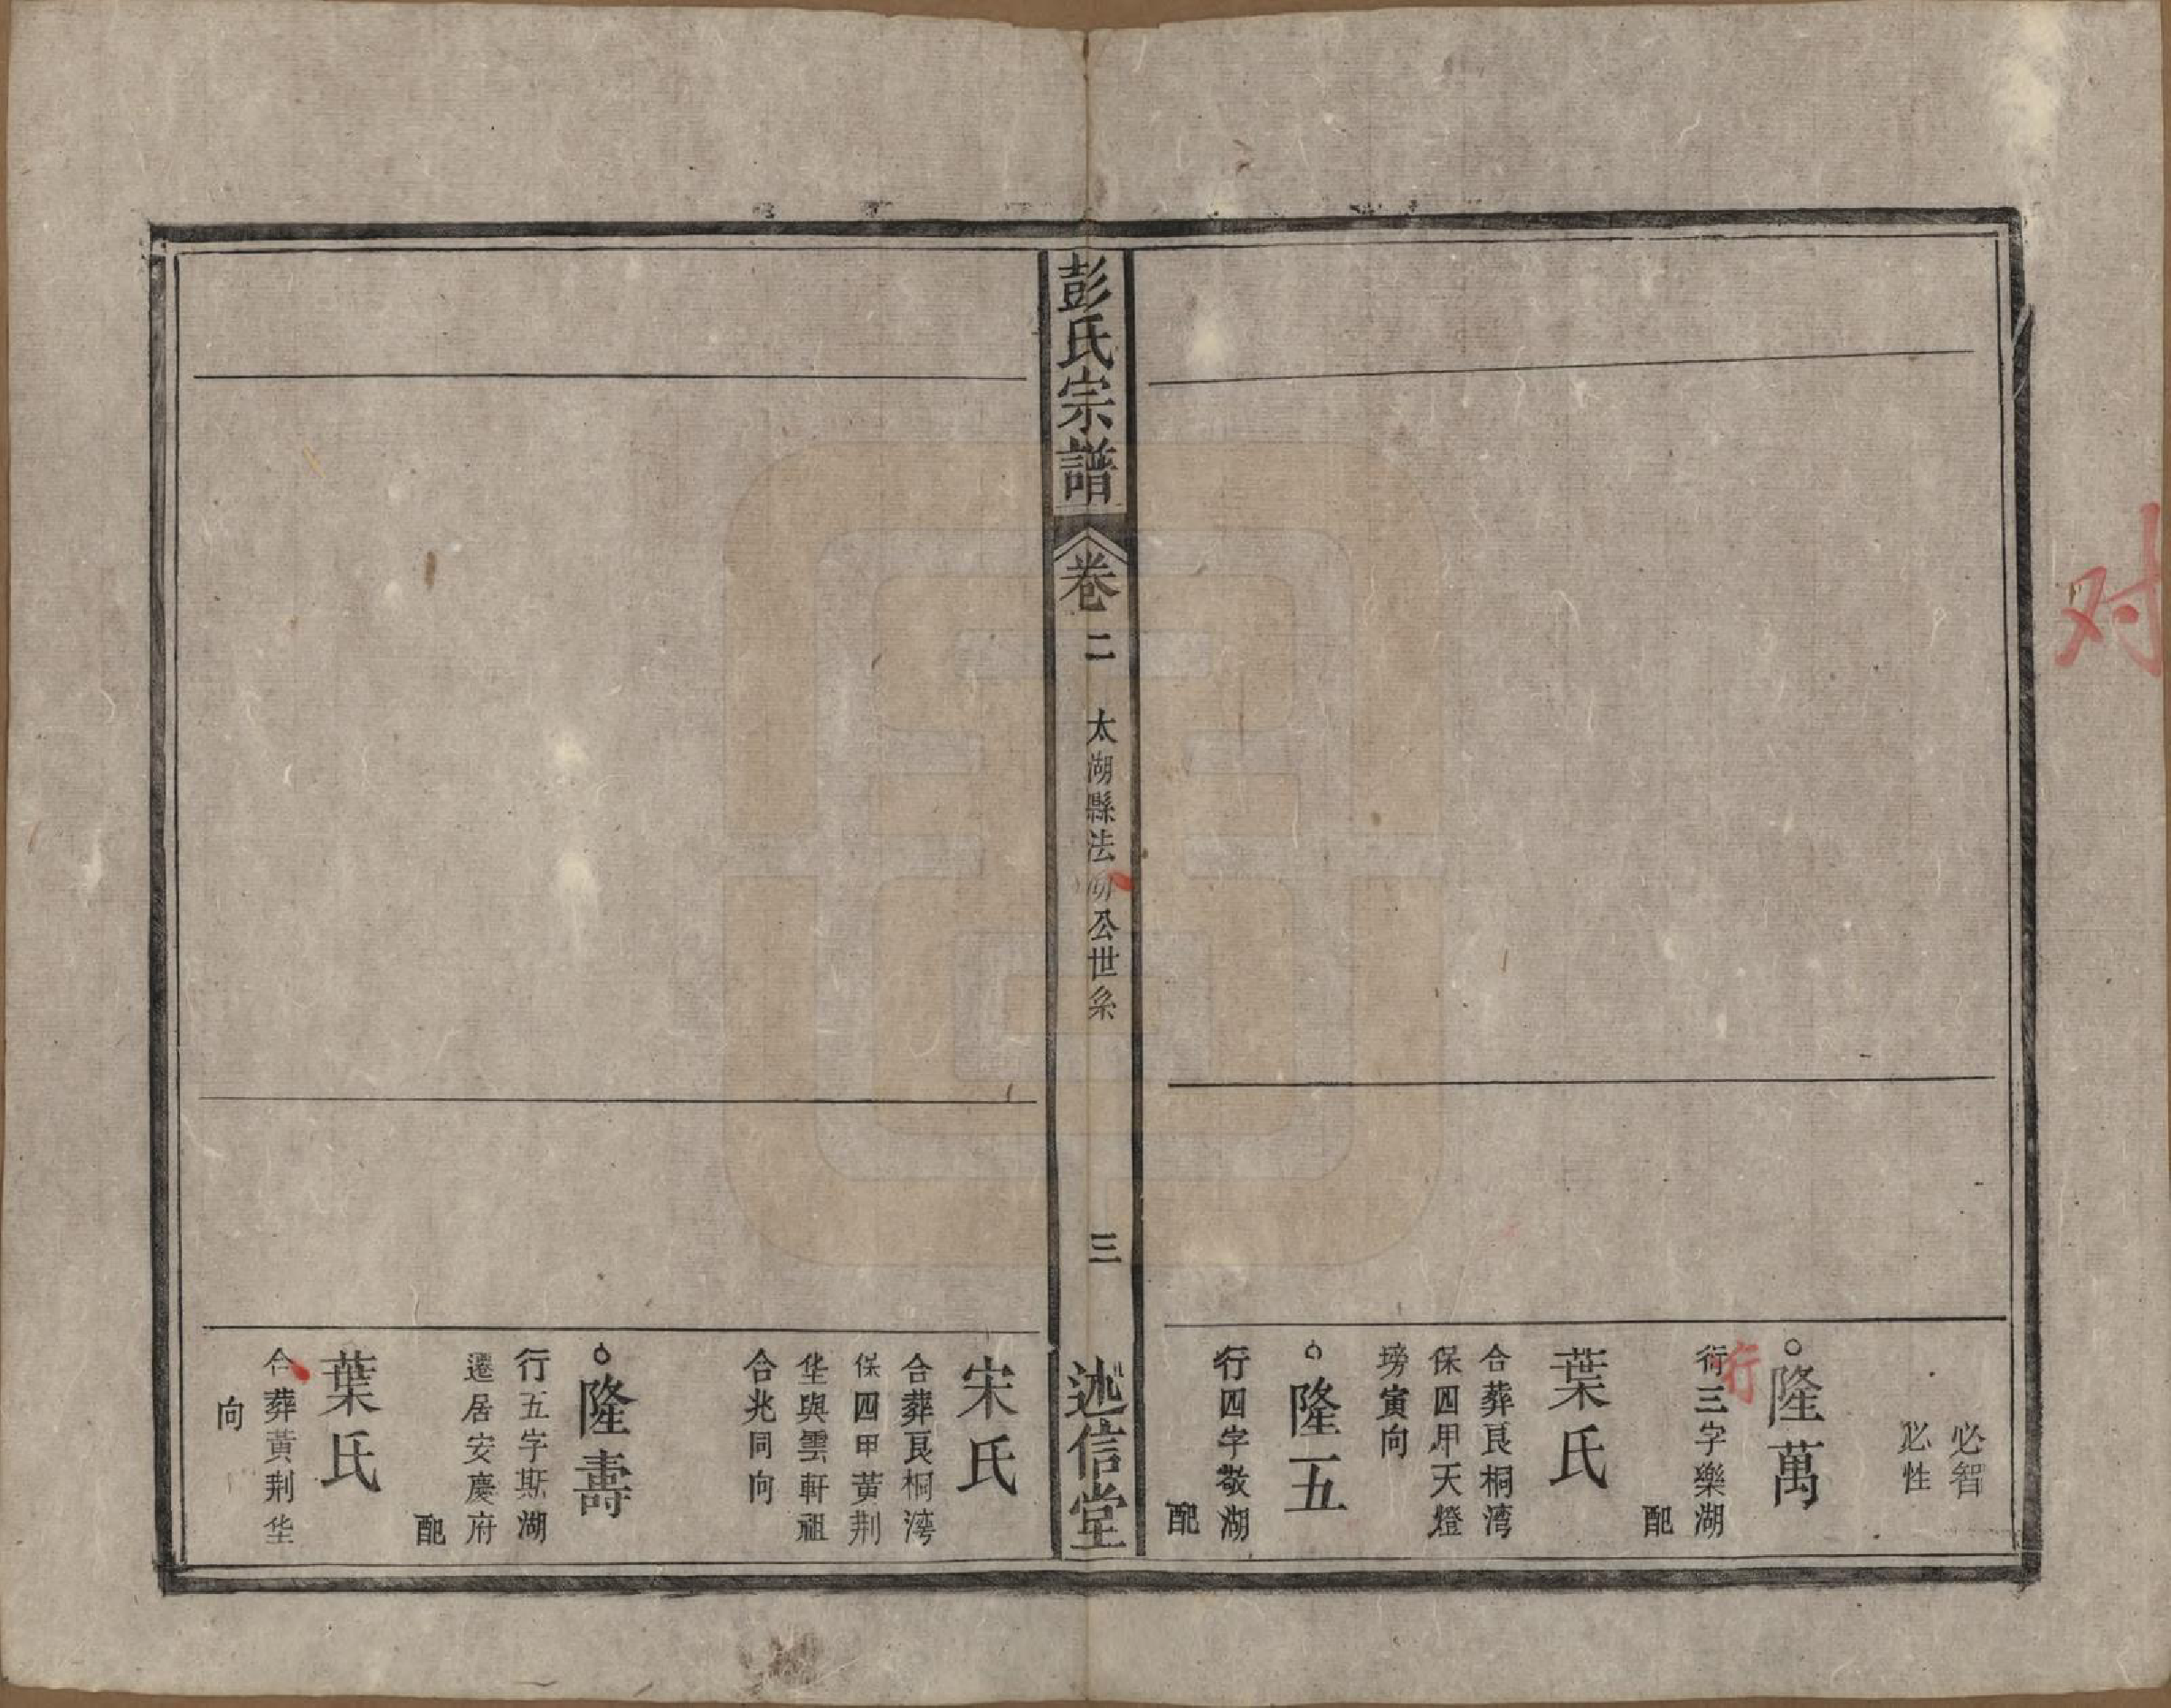 对
必智
必性
○隆萬
行
衍三字樂湖
配
葉氏
合葬艮桐湾
保四甲天燈
塝寅向
○隆五
行四字敬湖
配
彭氏宗譜
卷二
太湖縣法明公世系
三
述信堂
宋氏
合葬艮桐湾
保四甲黄荆
垡與雲軒祖
合兆同向
○隆壽
行五字斯湖
遷居安慶府
配
葉氏
合葬黃荆垡
向